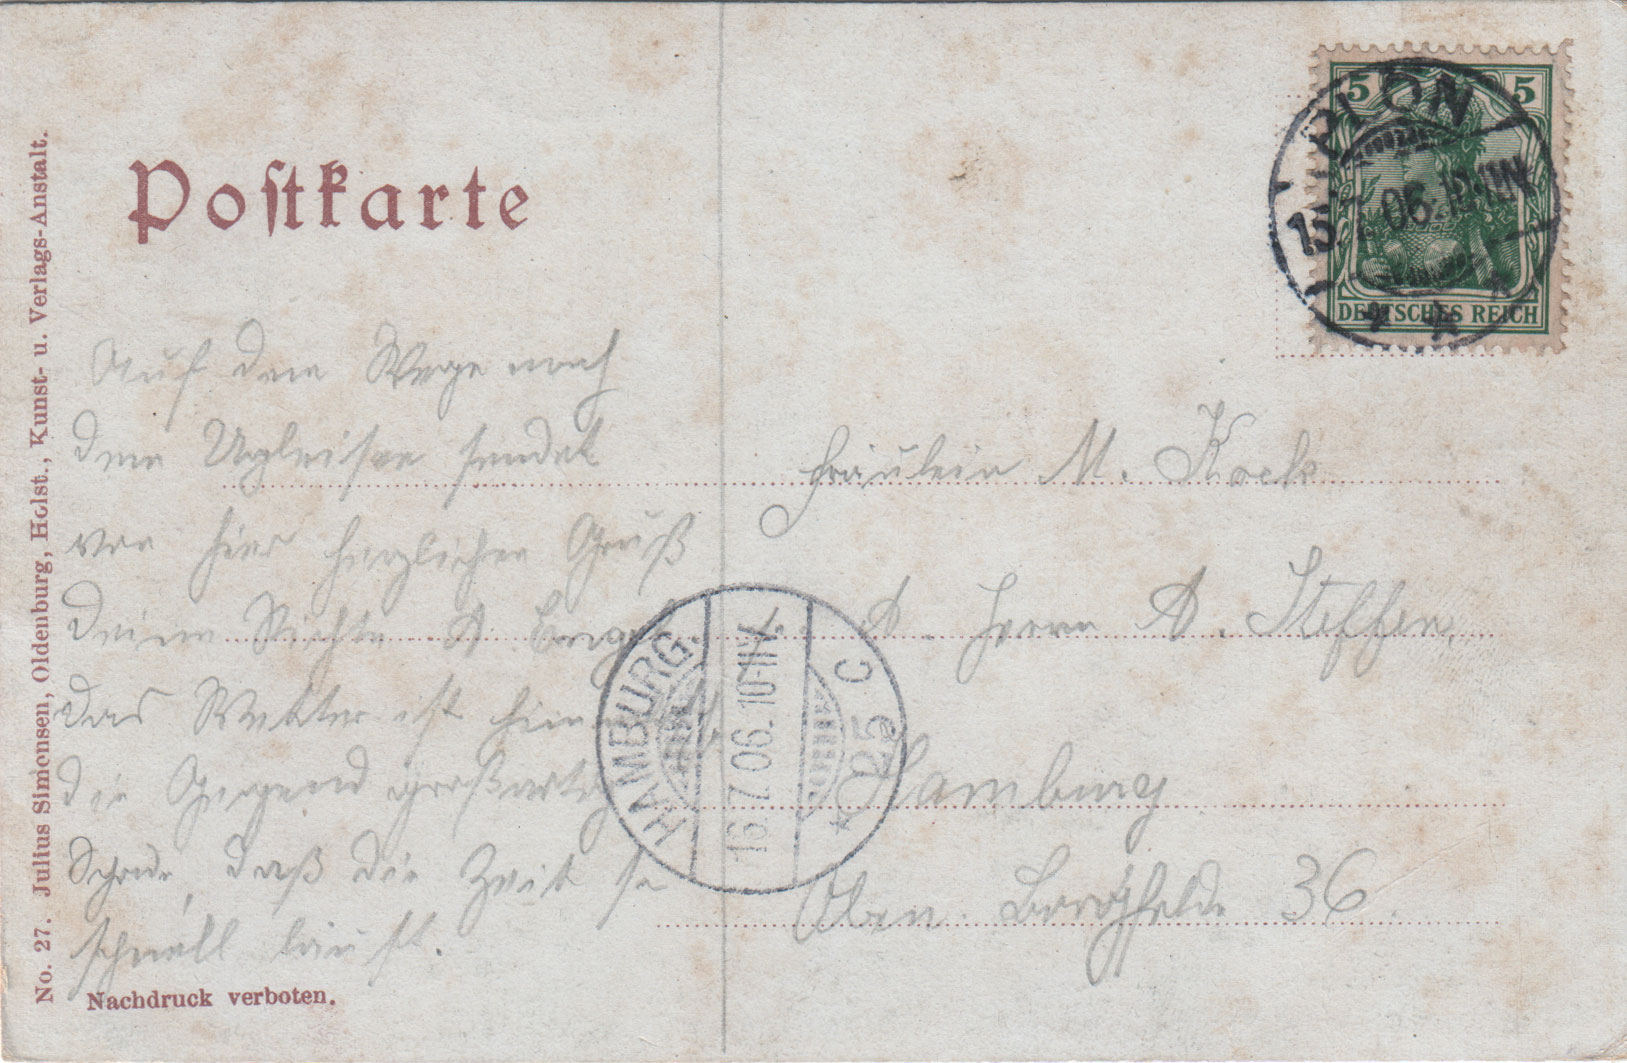 Postkarte
No. 27. Julius Simonsen, Oldenburg, Holst., Kunst- u. Verlags-Anstalt.
5 5
DEUTSCHES REICH
PLÖN
15.7.06.
Auf dem Wege nach
dem Ugleisee sendet
von hier herzlichen Gruß
Deine Nichte A.
Das Wetter ist
die Gegend großartig
Schade, daß die Zeit so
schnell läuft.
Nachdruck verboten.
HAMBURG.
16.7.06.10-11V.
* 25 C
Fräulein M. Kock
A. Herrn A. Steffen,
Hamburg
Oben Borgfelde 36.